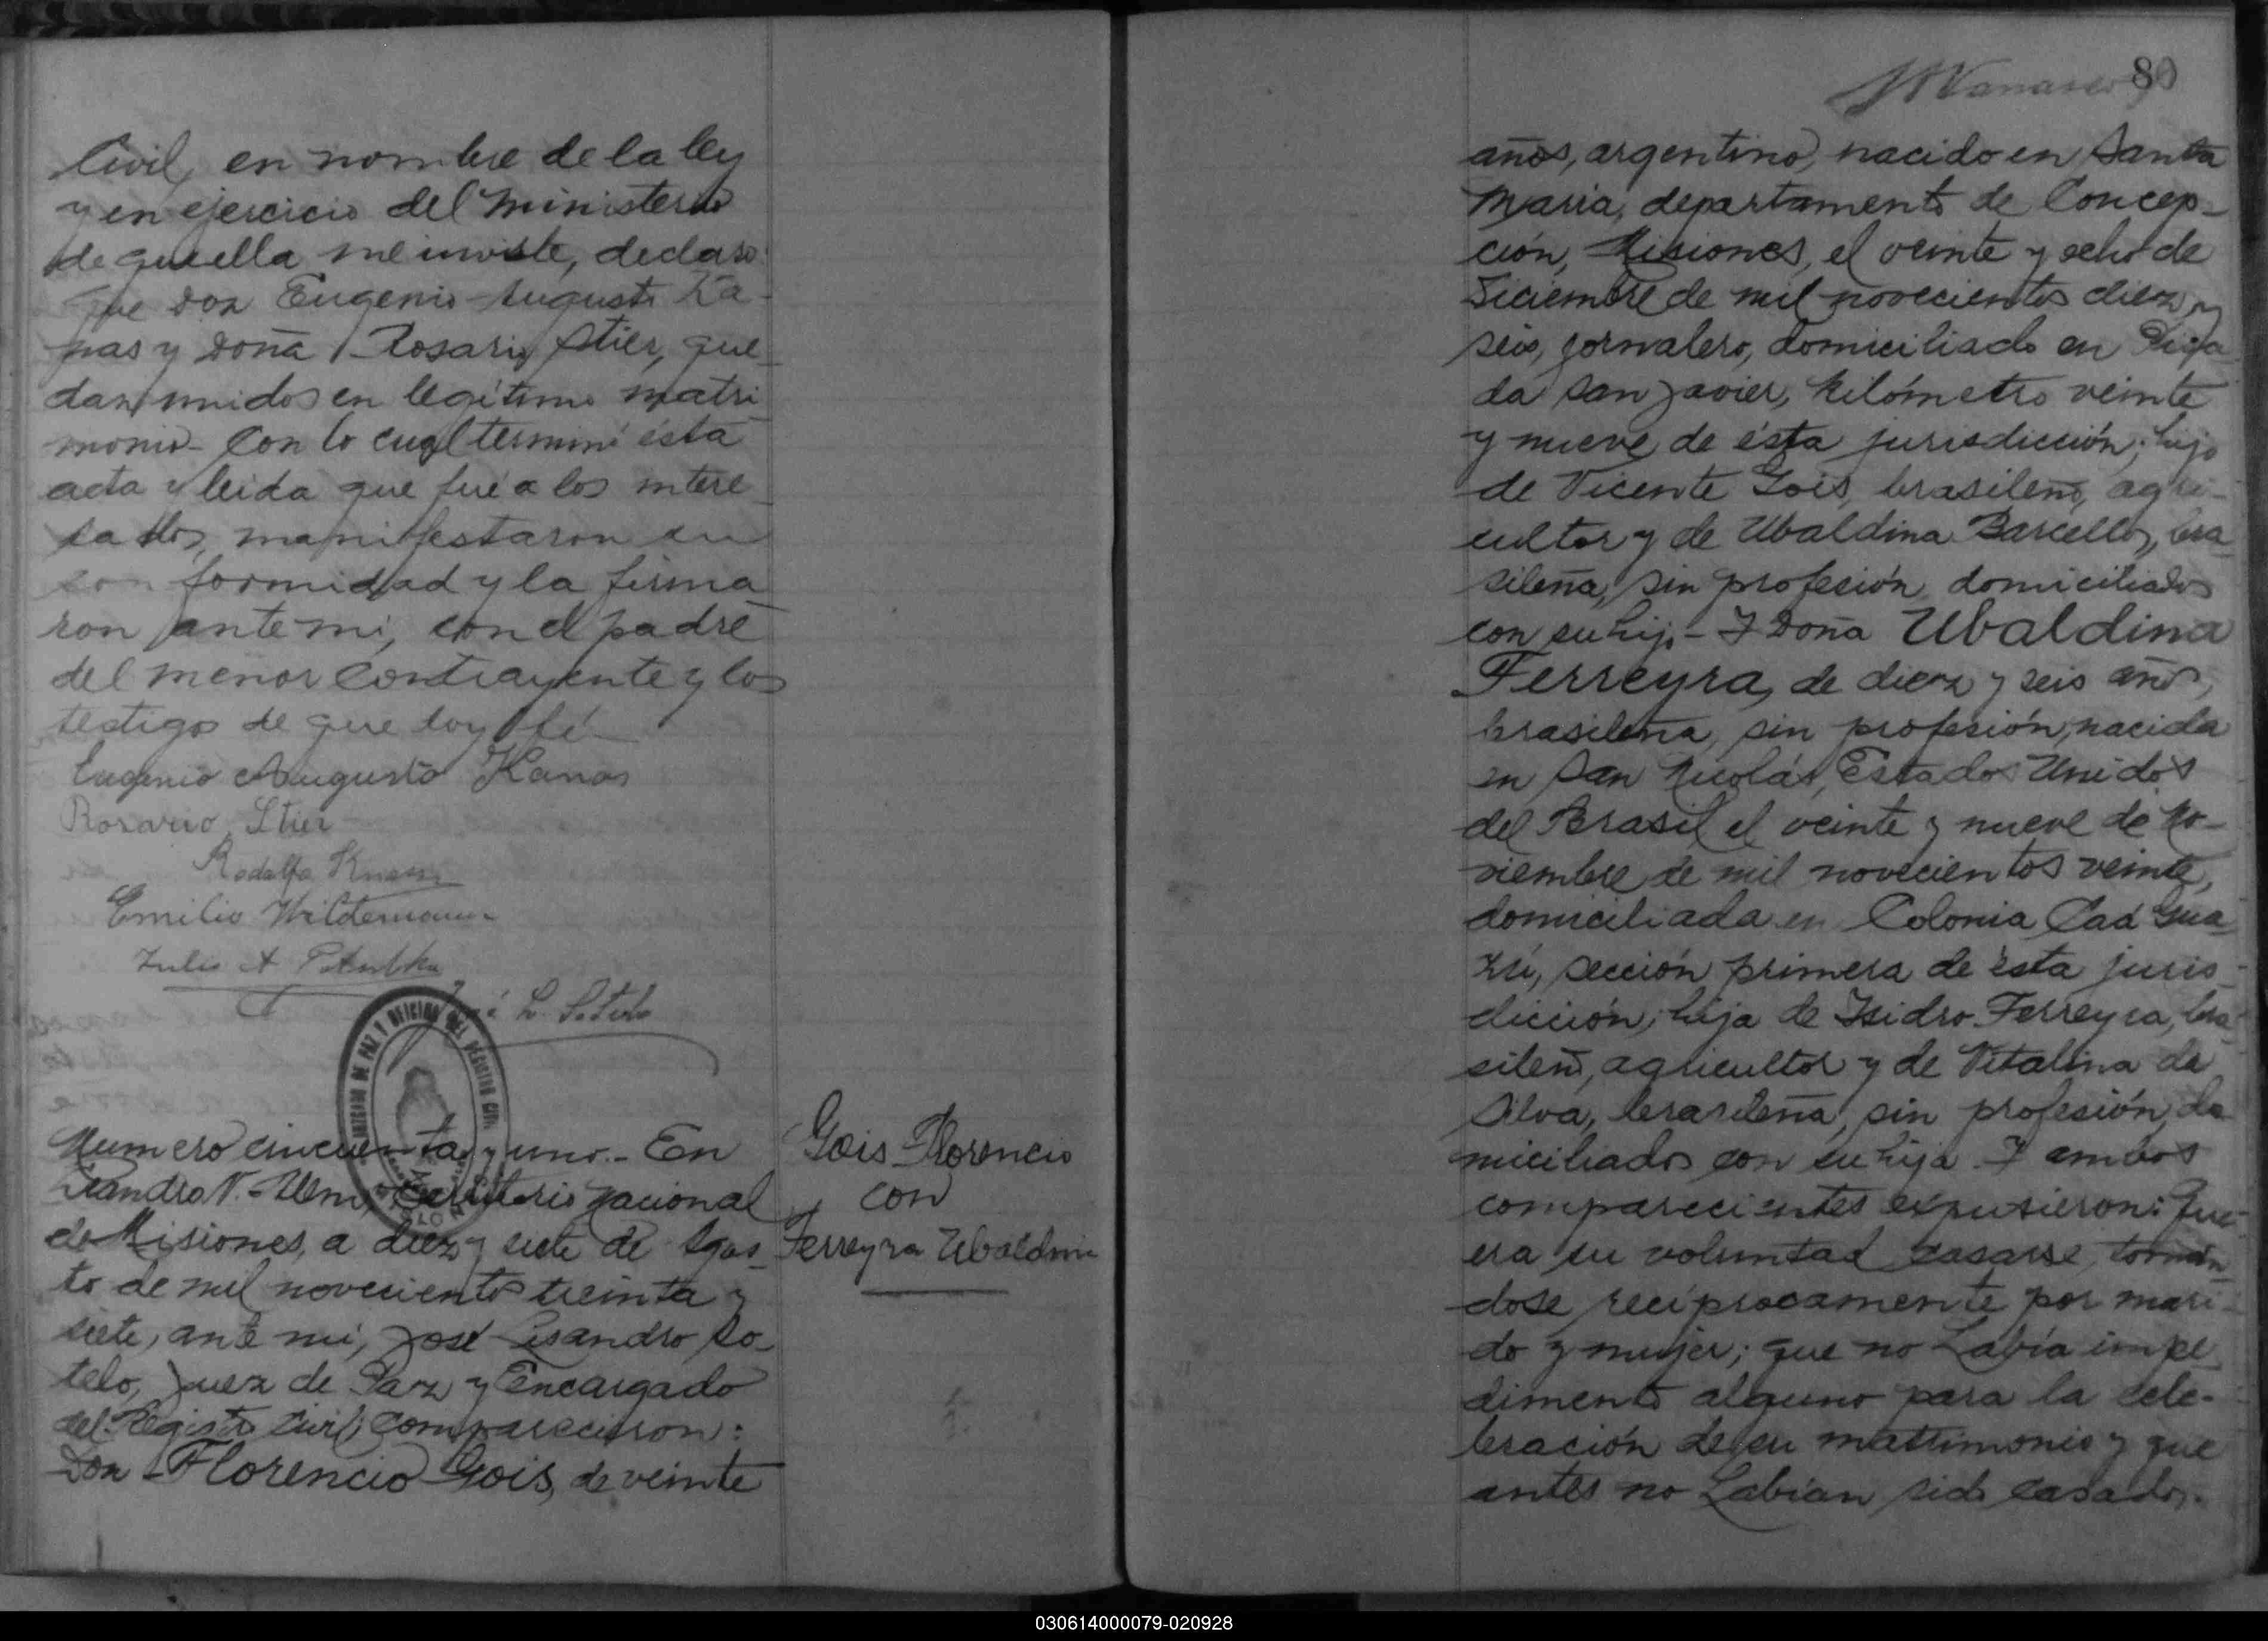 Civil, en nombre de la ley
y en ejercicio del ministerio
de que ella me inviste, declaro:
que Don Eugenio Augusto Ka-
nas y Doña Rosario Stier, que-
dan unidos en legítimo matri-
monio - Con lo cual terminé ésta
acta y leida que fué a los intere-
sados, manifestaron su
con formidad y la firma
ron ante mi, con el padre
del menor contrayente y los
testigos de que doy fé-
Eugenio Augusto Kanas
Rosario Stier
Rodolfo
Emilio Wildemann
Julio A
José L. Sotelo
JUZGADO DE PAZ Y OFICINA DEL REGISTRO CIVIL
Numero cincuenta y uno.- En
Leandro N. Alem, Territorio Nacional
de Misiones, a diez y siete de Agos-
to de mil novecientos treinta y
siete, ante mi, José Lisandro So-
telo, Juez de Paz y Encargado
del Registro Civil; comparecieron:
Don Florencio Gois, de veinte
Gois Florencio
con
Ferreyra Ubaldina
80
años, argentino, nacido en Santa
Maria, departamento de Concep-
ción, Misiones, el veinte y ocho de
Diciembre de mil novecientos diez y
seis, jornalero, domiciliado en Pica
da San Javier, kilómetro veinte
y nueve de ésta jurisdicción; hijo
de Vicente Gois, brasileño, agri-
cultor y de Ubaldina Barcellos, bra-
sileña, sin profesión, domiciliados
con su hijo - Y Doña Ubaldina
Ferreyra, de diez y seis años,
brasileña, sin profesión, nacida
en San Nicolás, Estados Unidos
del Brasil, el veinte y nueve de No-
viembre de mil novecientos veinte,
domiciliada en Colonia Caá Gua-
zú, sección primera de ésta juris-
dicción; hija de Isidro Ferreyra, bra-
sileño, agricultor y de Vitalina da
Silva, brasileña, sin profesión, do
miciliados con su hija. Y ambos
comparecientes expusieron: Que
era su voluntad casarse, tomán-
dose recíprocamente por mari-
do y mujer; que no había impe-
dimento alguno para la cele-
bración de su matrimonio y que
antes no habían sido casados.
030614000079-020928